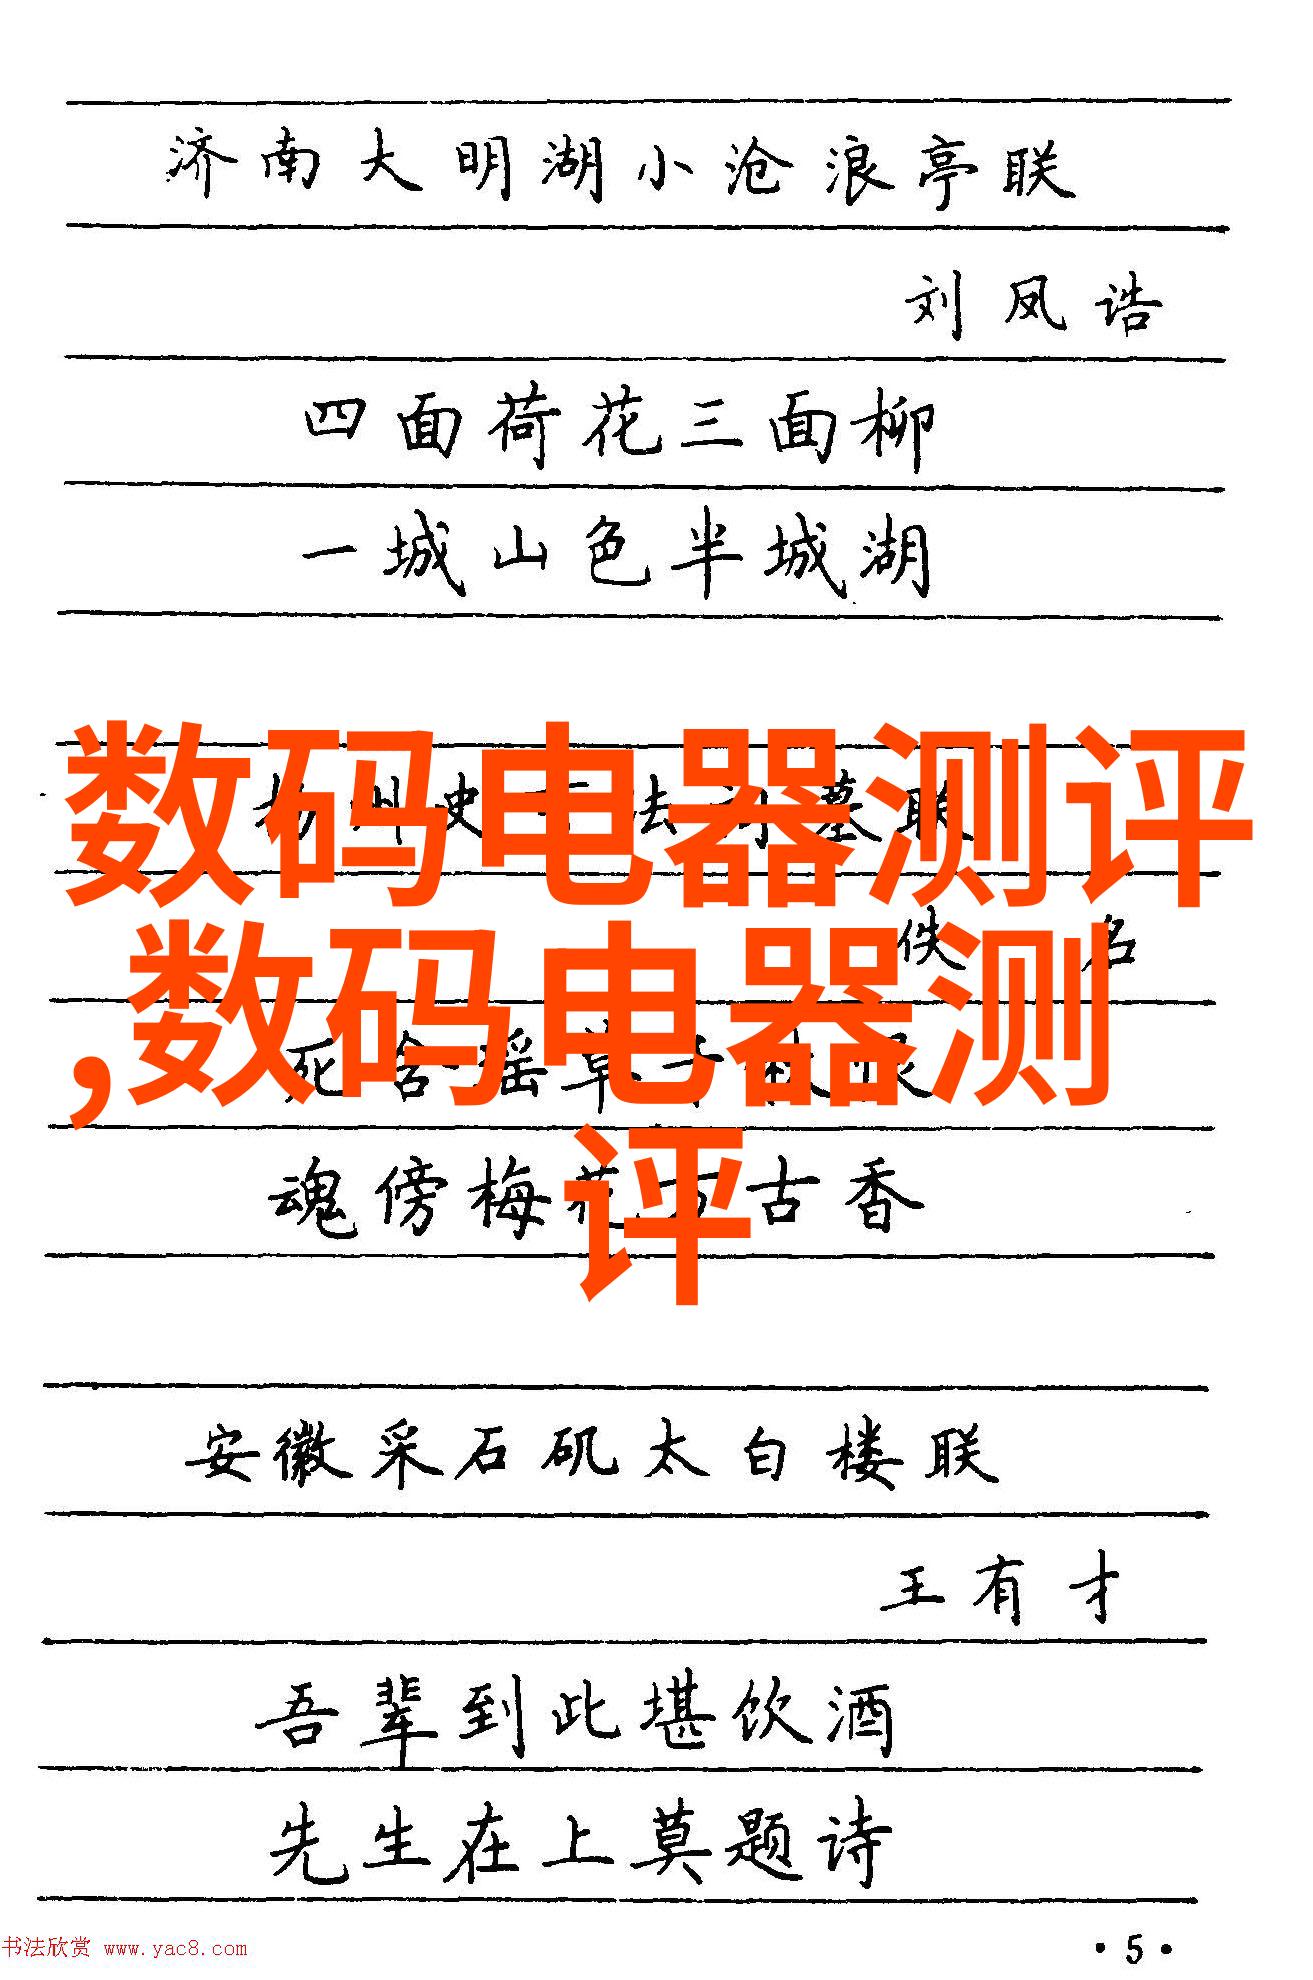 济南大明湖小沧浪亭联
刘凤诰
四面荷花三面柳
一城山色半城湖
数码电器测评
扬州史 法 墓联
佚名
,数码电器测
死 含 瑶草千秋恨
评
魂傍梅花万古香
安徽采石矶太白楼联
王有才
吾辈到此堪饮酒
先生在上莫题诗
书法欣赏 www.yac8.com
·5·